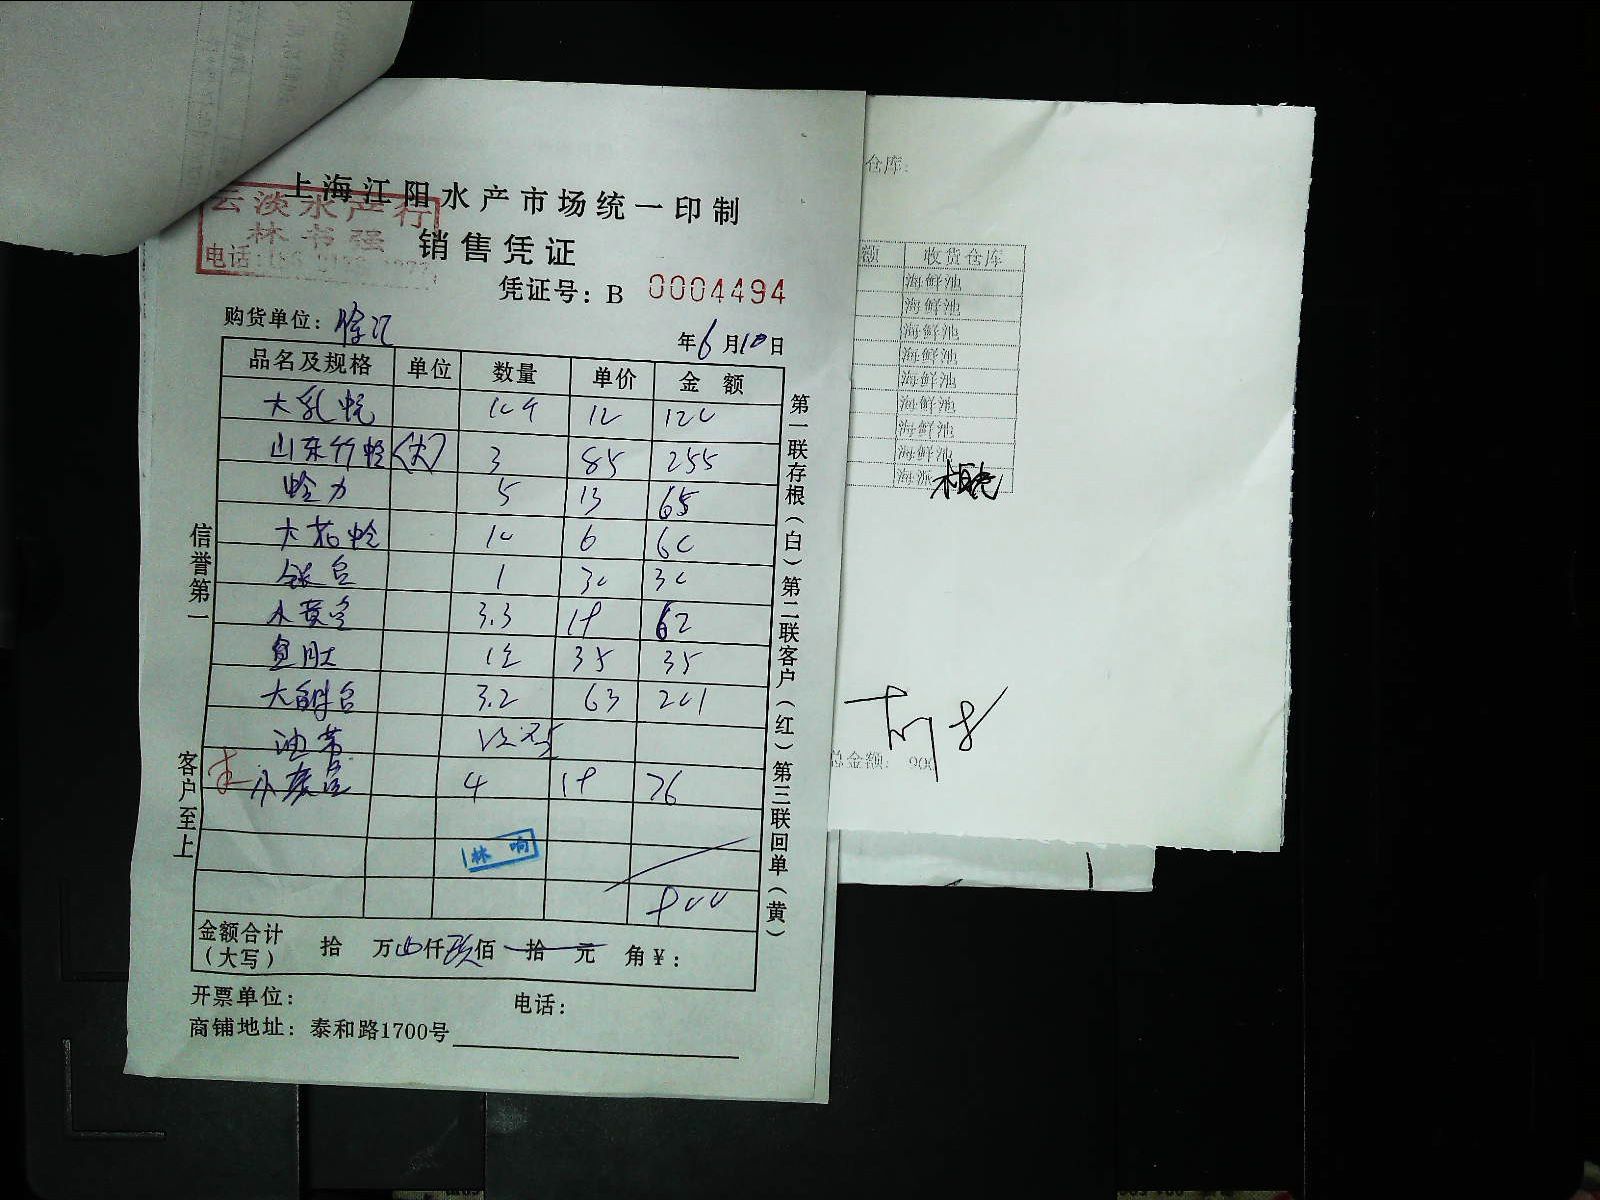 上海江阳水产市场统一印制
云淡水产行
林书强
电话:
销售凭证
凭证号: B 0004494
购货单位: 徐汇
年6月10日
品名及规格 单位 数量 单价 金额
大乳蚬 10斤 12 120
山东竹蛏(大) 3 85 255
蛤力 5 13 65
大花蛤 10 6 60
1 30 30
小黄 3.3 19 62
鱼肚 1包 35 35
大鲜 3.2 63 201
油蒂
小黄 4 19 76
林 响
900
金额合计(大写) 拾 万 仟玖佰 拾 元 角¥:
开票单位: 电话:
商铺地址: 泰和路1700号
信誉第一
客户至上
第一联存根(白)第二联客户(红)第三联回单(黄)
仓库:
额 收货仓库
海鲜池
海鲜池
海鲜池
海鲜池
海鲜池
海鲜池
海鲜池
海鲜池
海鲜
总金额: 900